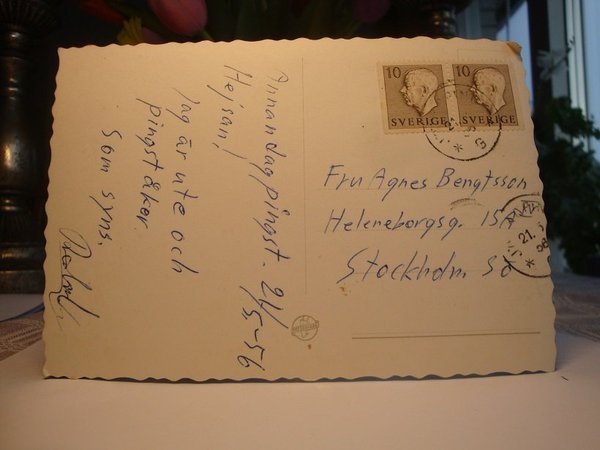 Annandag pingst. 21/5-56
Hejsan!
Jag är ute och
pingståker
som syns.
10 10
SVERIGE SVERIGE
Fru Agnes Bengtsson
Heleneborgsg. 15A
Stockholm Sö
21. 5